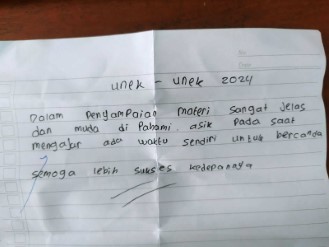 unek - unek 2024
Dalam Penyampaian materi sangat jelas
dan muda di Pahami. asik Pada saat
mengajar ada waktu sendiri untuk bercanda
semoga lebih sukses kedepannya